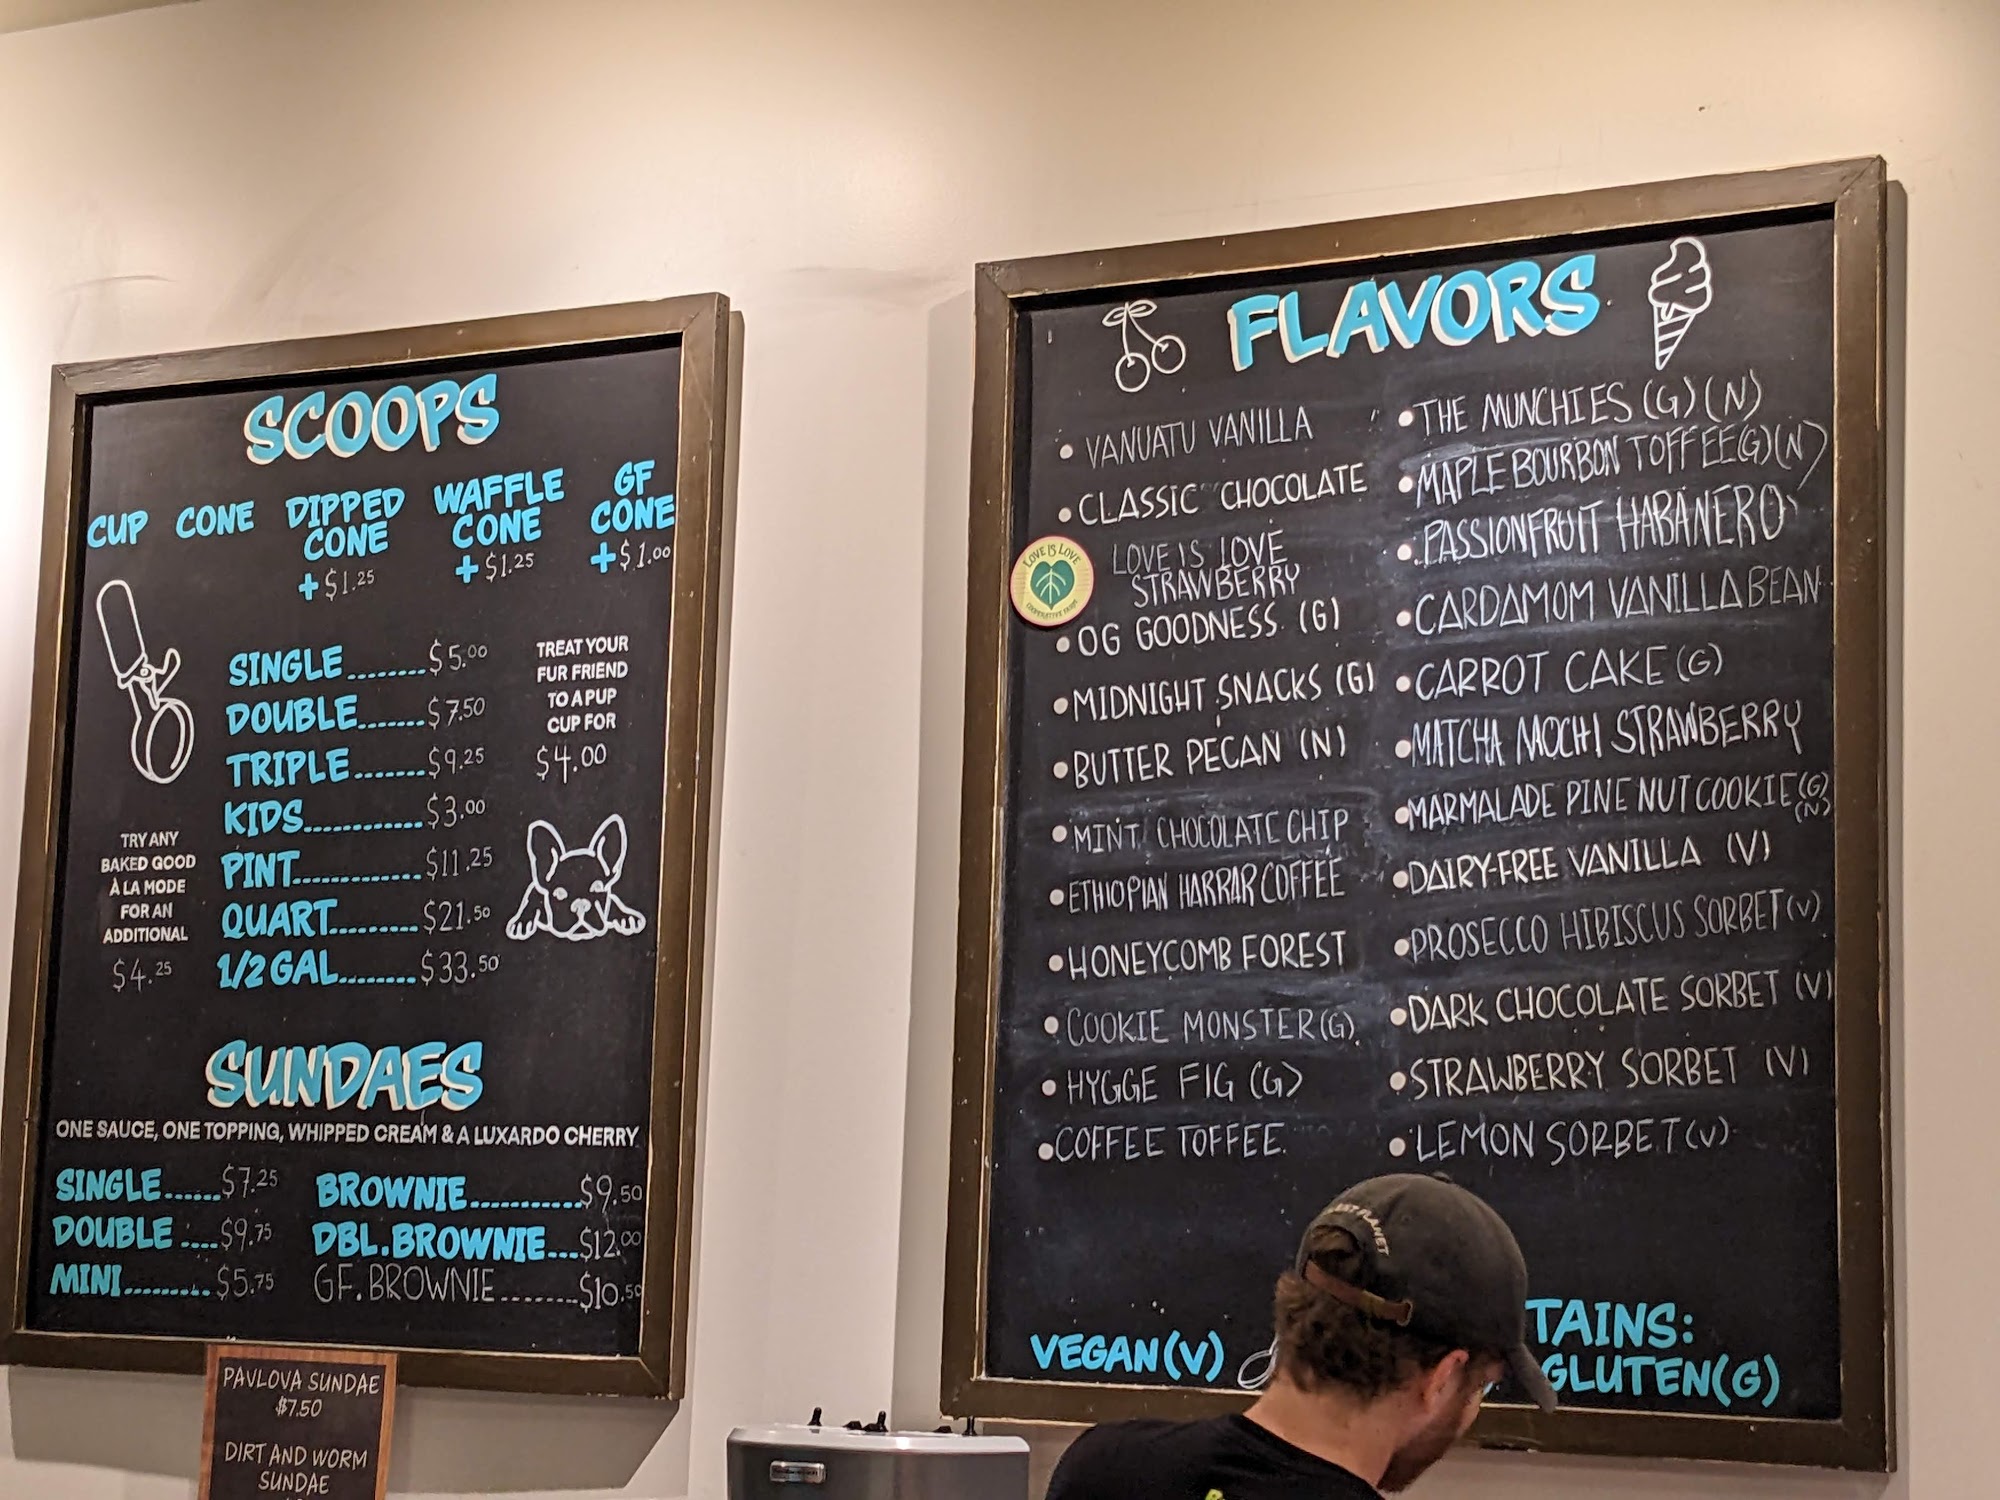 SCOOPS
CUP
CONE
DIPPED
CONE
+$1.25
WAFFLE
CONE
+$1.25
GF
CONE
+$1.00
SINGLE........$5.00
DOUBLE.......$7.50
TRIPLE.......$9.25
KIDS............$3.00
PINT.............$11.25
QUART.........$21.50
1/2 GAL........$33.50
TREAT YOUR
FUR FRIEND
TO A PUP
CUP FOR
$4.00
TRY ANY
BAKED GOOD
À LA MODE
FOR AN
ADDITIONAL
$4.25
SUNDAES
ONE SAUCE, ONE TOPPING, WHIPPED CREAM & A LUXARDO CHERRY
SINGLE......$7.25
DOUBLE ....$9.75
MINI.........$5.75
BROWNIE...........$9.50
DBL.BROWNIE...$12.00
GF.BROWNIE.......$10.50
PAVLOVA SUNDAE
$7.50
DIRT AND WORM
SUNDAE
FLAVORS
• VANUATU VANILLA
• CLASSIC CHOCOLATE
LOVE IS LOVE
COOPERATIVE FARM
LOVE IS LOVE
STRAWBERRY
• OG GOODNESS (G)
• MIDNIGHT SNACKS (G)
• BUTTER PECAN (N)
• MINT CHOCOLATE CHIP
• ETHIOPIAN HARRAR COFFEE
• HONEYCOMB FOREST
• COOKIE MONSTER (G)
• HYGGE FIG (G)
• COFFEE TOFFEE
• THE MUNCHIES (G) (N)
• MAPLE BOURBON TOFFEE (G) (N)
• PASSIONFRUIT HABANERO
• CARDAMOM VANILLA BEAN
• CARROT CAKE (G)
• MATCHA MOCHI STRAWBERRY
• MARMALADE PINE NUT COOKIE (G)
(N)
• DAIRY-FREE VANILLA (V)
• PROSECCO HIBISCUS SORBET (V)
• DARK CHOCOLATE SORBET (V)
• STRAWBERRY SORBET (V)
• LEMON SORBET (V)
VEGAN (V)
TAINS:
GLUTEN (G)
PLANET